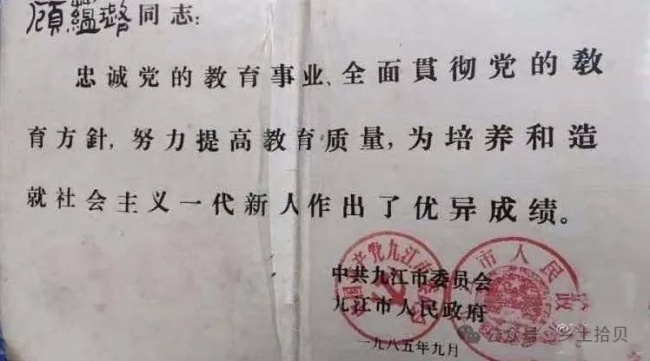 顾蕴璐同志:
忠诚党的教育事业、全面貫彻党的教
育方針,努力提高教育质量,为培养和造
就社会主义一代新人作出了优异成绩。
中共九江市委员会
九江市人民政府
一九八五年九月
公众号·乡土拾贝